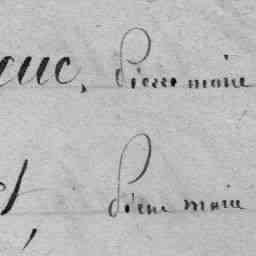 cuc, Pierre marie
t, Pierre marie